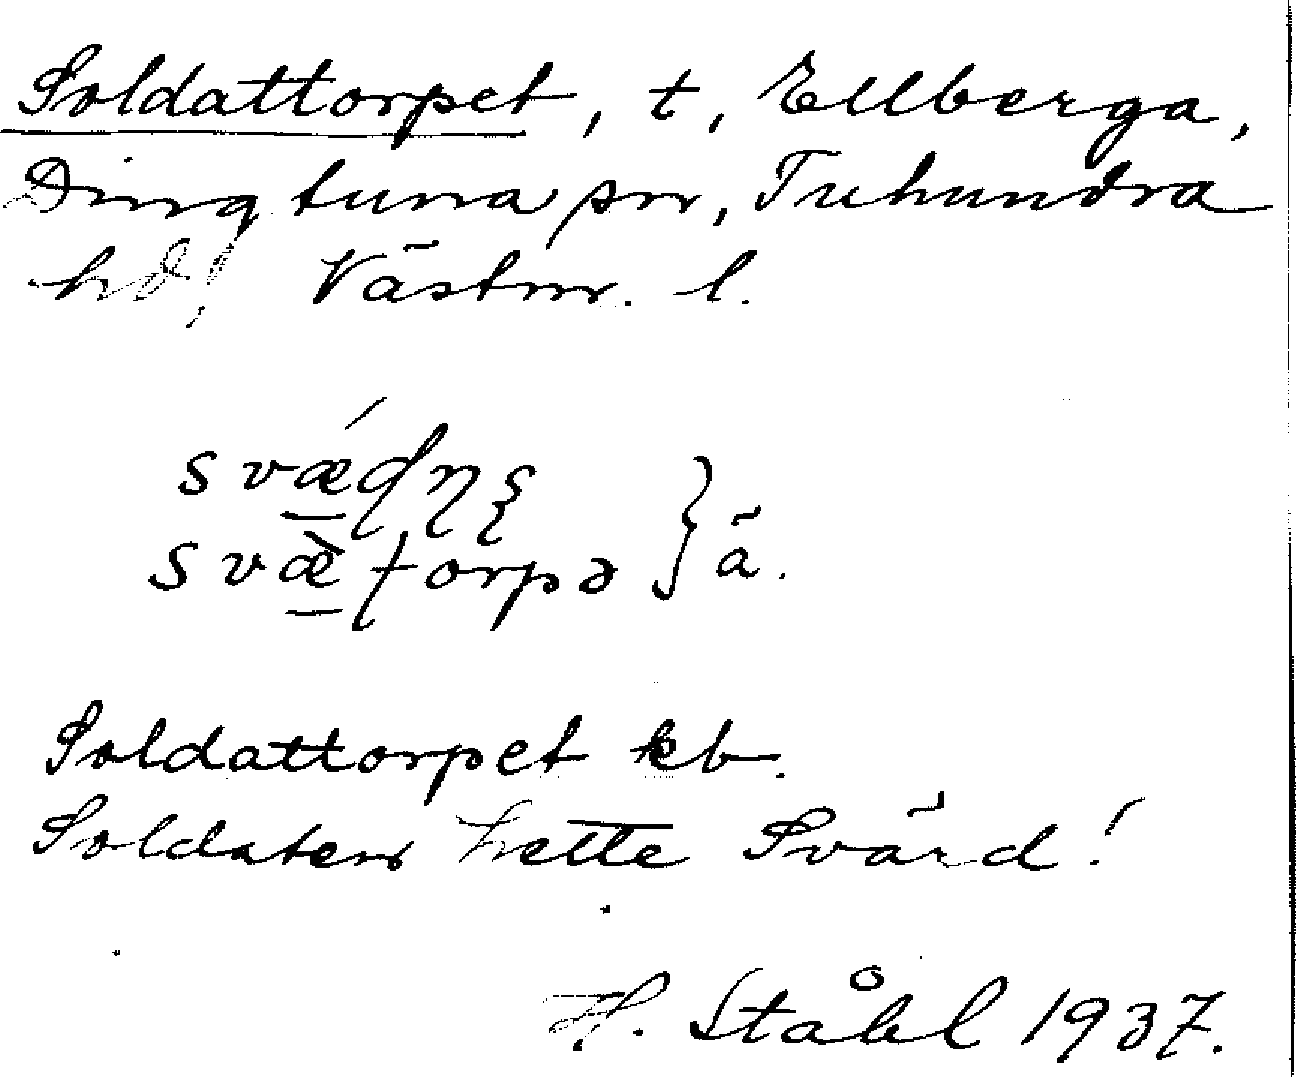 Soldattorpet, t, Ellberga,
Dingtuna sn, Tuhundra
hd, Västm. l.
} ä.
Soldattorpet kb.
Soldaten hette Svärd!
H. Ståhl 1937.